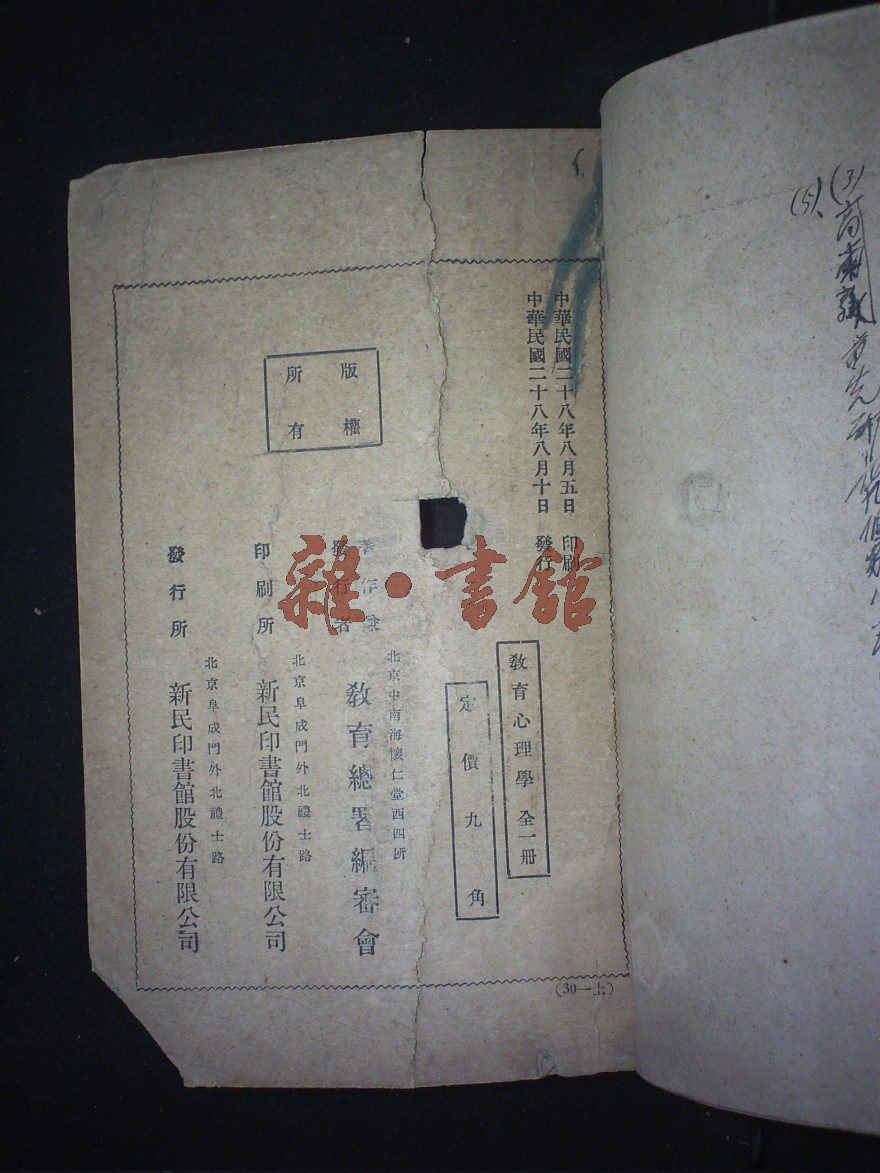 中華民國二十八年八月五日 印刷
中華民國二十八年八月十日 發行
教育心理學 全一冊
定價九角
版權所有
北京中南海懷仁堂西四所
著作兼
發行者 教育總署編審會
北京阜成門外北禮士路
印刷所 新民印書館股份有限公司
北京阜成門外北禮士路
發行所 新民印書館股份有限公司
(30—上)
雜·書館
(3)
(5)、